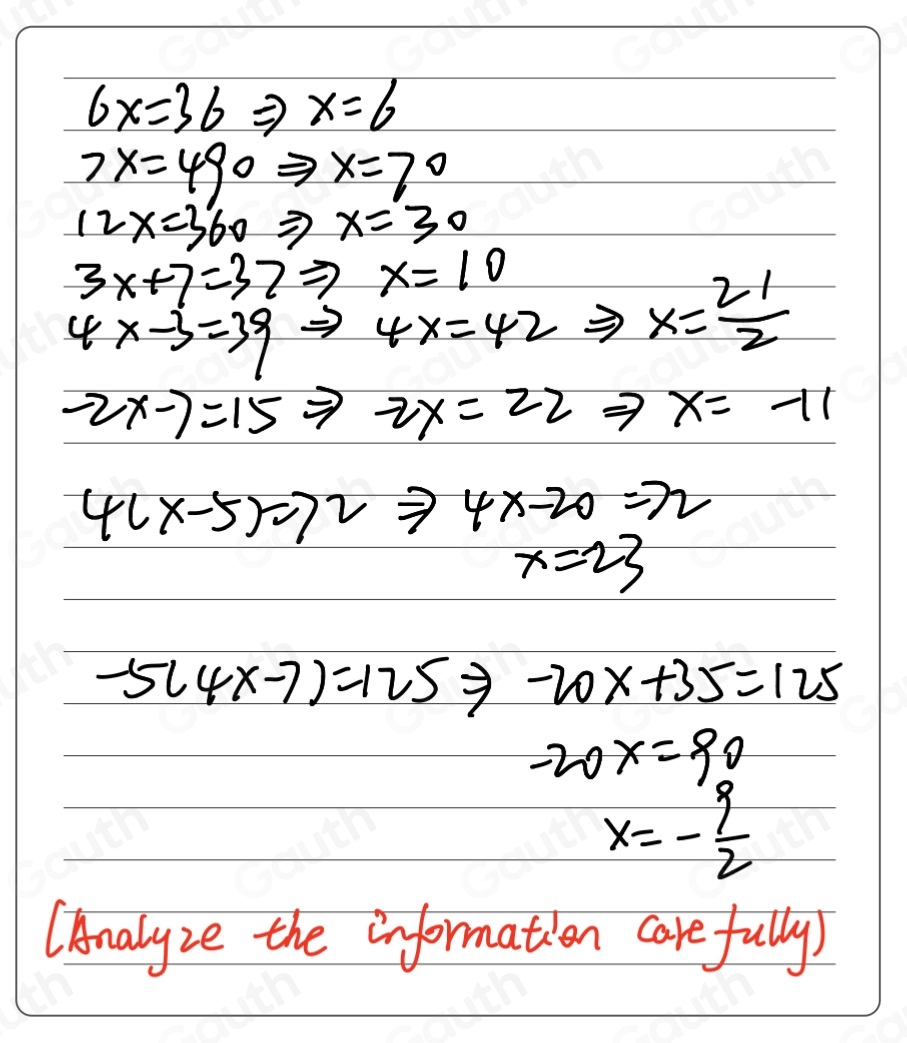 6x=36 ⇒ x=6
7x=490 ⇒ x=70
12x=360 ⇒ x=30
3x+7=37 ⇒ x=10
4x-3=39 ⇒ 4x=42 ⇒ x=21/2
-2x-7=15 ⇒ -2x=22 ⇒ x=-11
4(x-5)=72 ⇒ 4x-20=72
x=23
-5(4x-7)=125 ⇒ -20x+35=125
-20x=90
x=-9/2
(Analyze the information carefully)